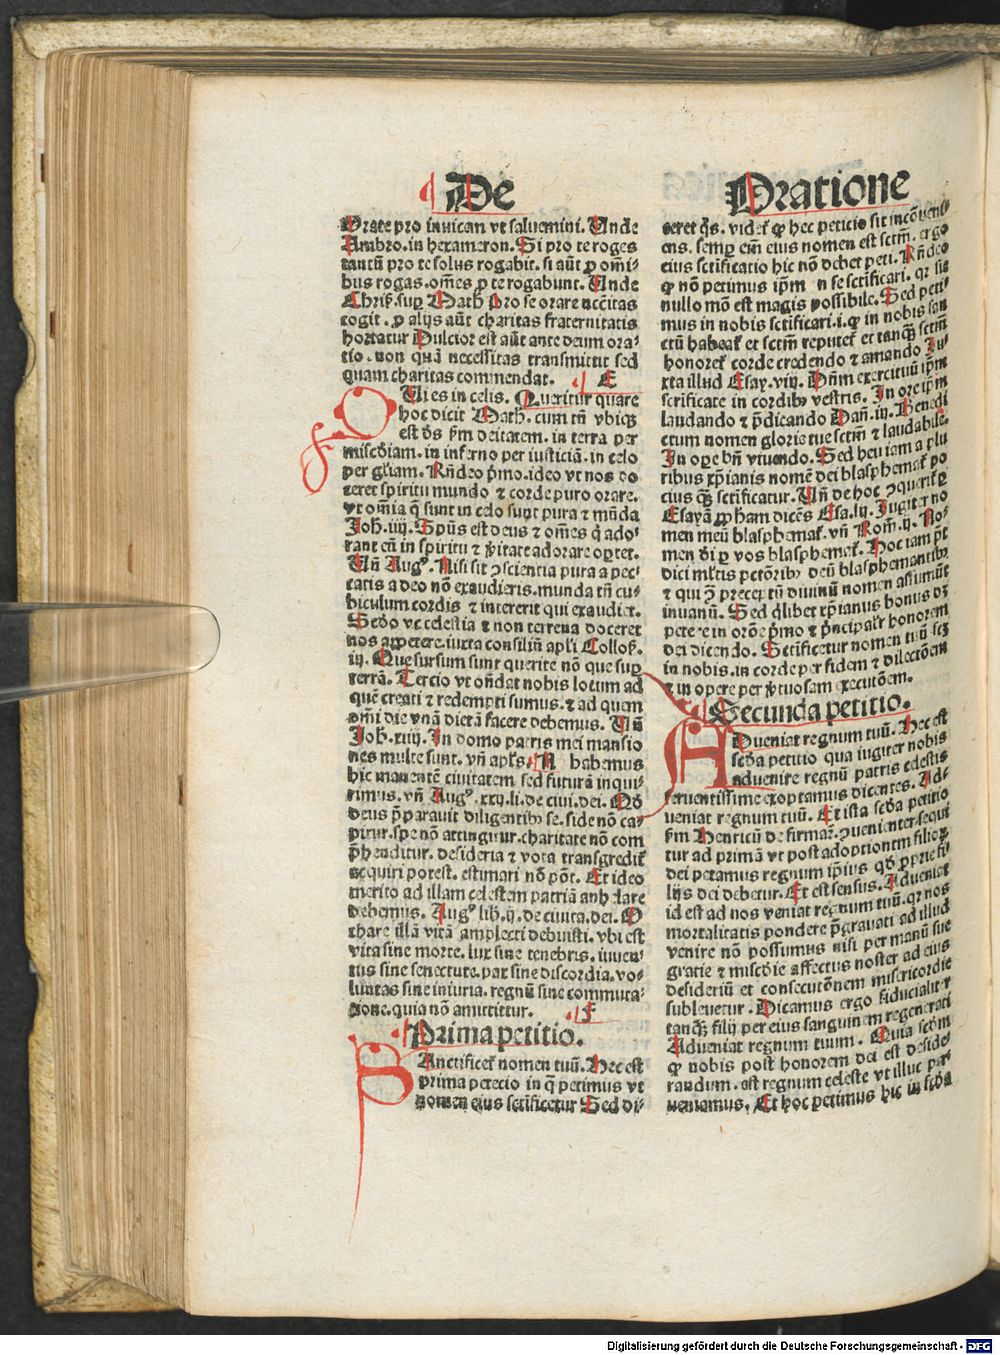 De
Orate pro inuicem vt saluemini. Unde
Ambro. in hexameron. Si pro te roges
tantū pro te solus rogabit. si aūt ꝓ om̄i⸗
bus rogas. om̄es ꝓ te rogabunt. Unde
Chriſ. suꝑ Math Pro se orare necc̄itas
cogit. ꝓ alijs aūt charitas fraternitatis
hortatur Dulcior est aūt ante deum ora⸗
tio. non quā necessitas transmittit sed
quam charitas commendat. E
Ui es in celis. Queritur quare
hoc dicit Math. cum tn̄ vbiqꝫ
est dꝰs ꝑm deitatem. in terra per
miscd̄iam. in inferno per iusticiā. in celo
per gl̄iam. Rn̄deo pͥmo. ideo vt nos do
ceret spiritu mundo ⁊ corde puro orare.
vt om̄ia q̄ sunt in celo sunt pura ⁊ mūda
Joh̄. iiij. Spūs est deus ⁊ om̄es q̄ ado⸗
rant eū in spiritu ⁊ v̄itate adorare oꝑtet.
Un̄ Augꝰ. Nisi sit ↄscientia pura a pec⸗
catis a deo nō exaudieris. munda tn̄ cu⸗
biculum cordis ⁊ intererit qui exaudiet.
Scd̄o vt celestia ⁊ non terrena doceret
nos appetere. iuxta consiliū apl̄i Colloſ.
iij. Que sursum sunt querite nō que suꝑ
terrā. Tercio vt on̄dat nobis locum ad
quē creati ⁊ redempti sumus. ⁊ ad quem
om̄i die vnā dietā facere debemus. Un̄
Joh̄. xiiij. In domo patris mei mansio
nes multe sunt. vn̄ apl̄s. N habemus
hic manentē ciuitatem sed futurā inqui
rimus. vn̄ Augꝰ. xxij. li. de ciui. dei. Qd̄
deus p̄parauit diligentibꝰ se. fide nō ca⸗
pitur. spe nō attingitur. charitate nō com
p̄henditur. desideria ⁊ vota transgredit̄
acquiri potest. estimari nō pōt. Et ideo
merito ad illam celestem patriā anhelare
debemus. Augꝰ lib. ij. de ciuita. dei. O
chare illā vitā amplecti debuisti. vbi est
vita sine morte. lux sine tenebris. iuuen⸗
tus sine senectute. pax sine discordia. vo⸗
luntas sine iniuria. regnū sine commuta⸗
tione. quia nō amittitur. F
Prima petitio.
Anctificet̄ nomen tuū. Hec est
prima peticio in q̄ petimus vt
nomen eius sctificetur Sed di⸗
Oratione
ceret q̄s. videt̄ ꝙ hec peticio sit incōueni⸗
ens. semꝑ em̄ eius nomen est sctm̄. ergo
eius sctificatio hic nō debet peti. Rn̄deo
ꝙ nō petimus ip̄m in se sctificari. qr sic
nullo mō est magis possibile. Sed peti⸗
mus in nobis sctificari. i. ꝙ in nobis san
ctū habeat̄ et sctm̄ reputet̄ et tanqꝫ sctm̄
honoret̄ corde credendo ⁊ amando Iu⸗
xta illud Esay. viij. Dn̄m exercituū ip̄m
sctificate in cordibꝰ vestris. In ore ip̄m
laudando ⁊ p̄dicando Dañ. iij. Benedi
ctum nomen glorie tue sctm̄ ⁊ laudabile.
In oꝑe bn̄ viuendo. Sed heu iam a plu
ribus xp̄ianis nomē dei blasphemat̄ po
cius qꝫ sctificatur. Un̄ de hoc ↄquerit̄ ꝑ
Esayā ꝓpham dicēs Esa. lij. Jugiter no
men meū blasphemat̄. vn̄ Rom̄. ij. No⸗
men di̅ ꝑ vos blasphemat̄. Hoc iam pōt
dici ml̄tis pctōribꝰ deū blasphemantibꝰ
⁊ qui ↄ̄ preceptū diuinū nomen assumūt
inuanū. Sed q̄libet xp̄ianus bonus dꝫ
petere in orōe pͥmo ⁊ pͥncipalr̄ honorem
dei dicendo. Sctificetur nomen tuū scꝫ
in nobis. in corde per fidem ⁊ dilectōem
⁊ in opere per v̄tuosam executōem.
Secunda petitio.
Adueniat regnum tuū. Hec est
scd̄a petitio qua iugiter nobis
aduenire regnū patris celestis
feruentissime exoptamus dicentes. Ad⸗
ueniat regnum tuū. Et ista scd̄a petitio
ꝑm Henricū de firmar̄. ↄuenienter sequi
tur ad primā vt post adoptionem filioꝝ
dei petamus regnum ip̄ius qd̄ ꝓprie fi⸗
lijs dei debetur. Et est sensus. Adueniat
id est ad nos veniat regnum tuū. qr nos
mortalitatis pondere p̄grauati ad illud
venire nō possumus nisi per manū sue
gratie ⁊ miscd̄ie affectus noster ad eius
desideriū et consecutōnem misericordie
subleuetur. Dicamus ergo fiducialiter
tanqꝫ filij per eius sanguinem regenerati
Adueniat regnum tuum. Quia scd̄m
ꝙ nobis post honorem dei est deside⸗
randum. est regnum celeste vt illuc per⸗
ueniamus. Et hoc petimus hic in scd̄a
Digitalisierung gefördert durch die Deutsche Forschungsgemeinschaft - DFG